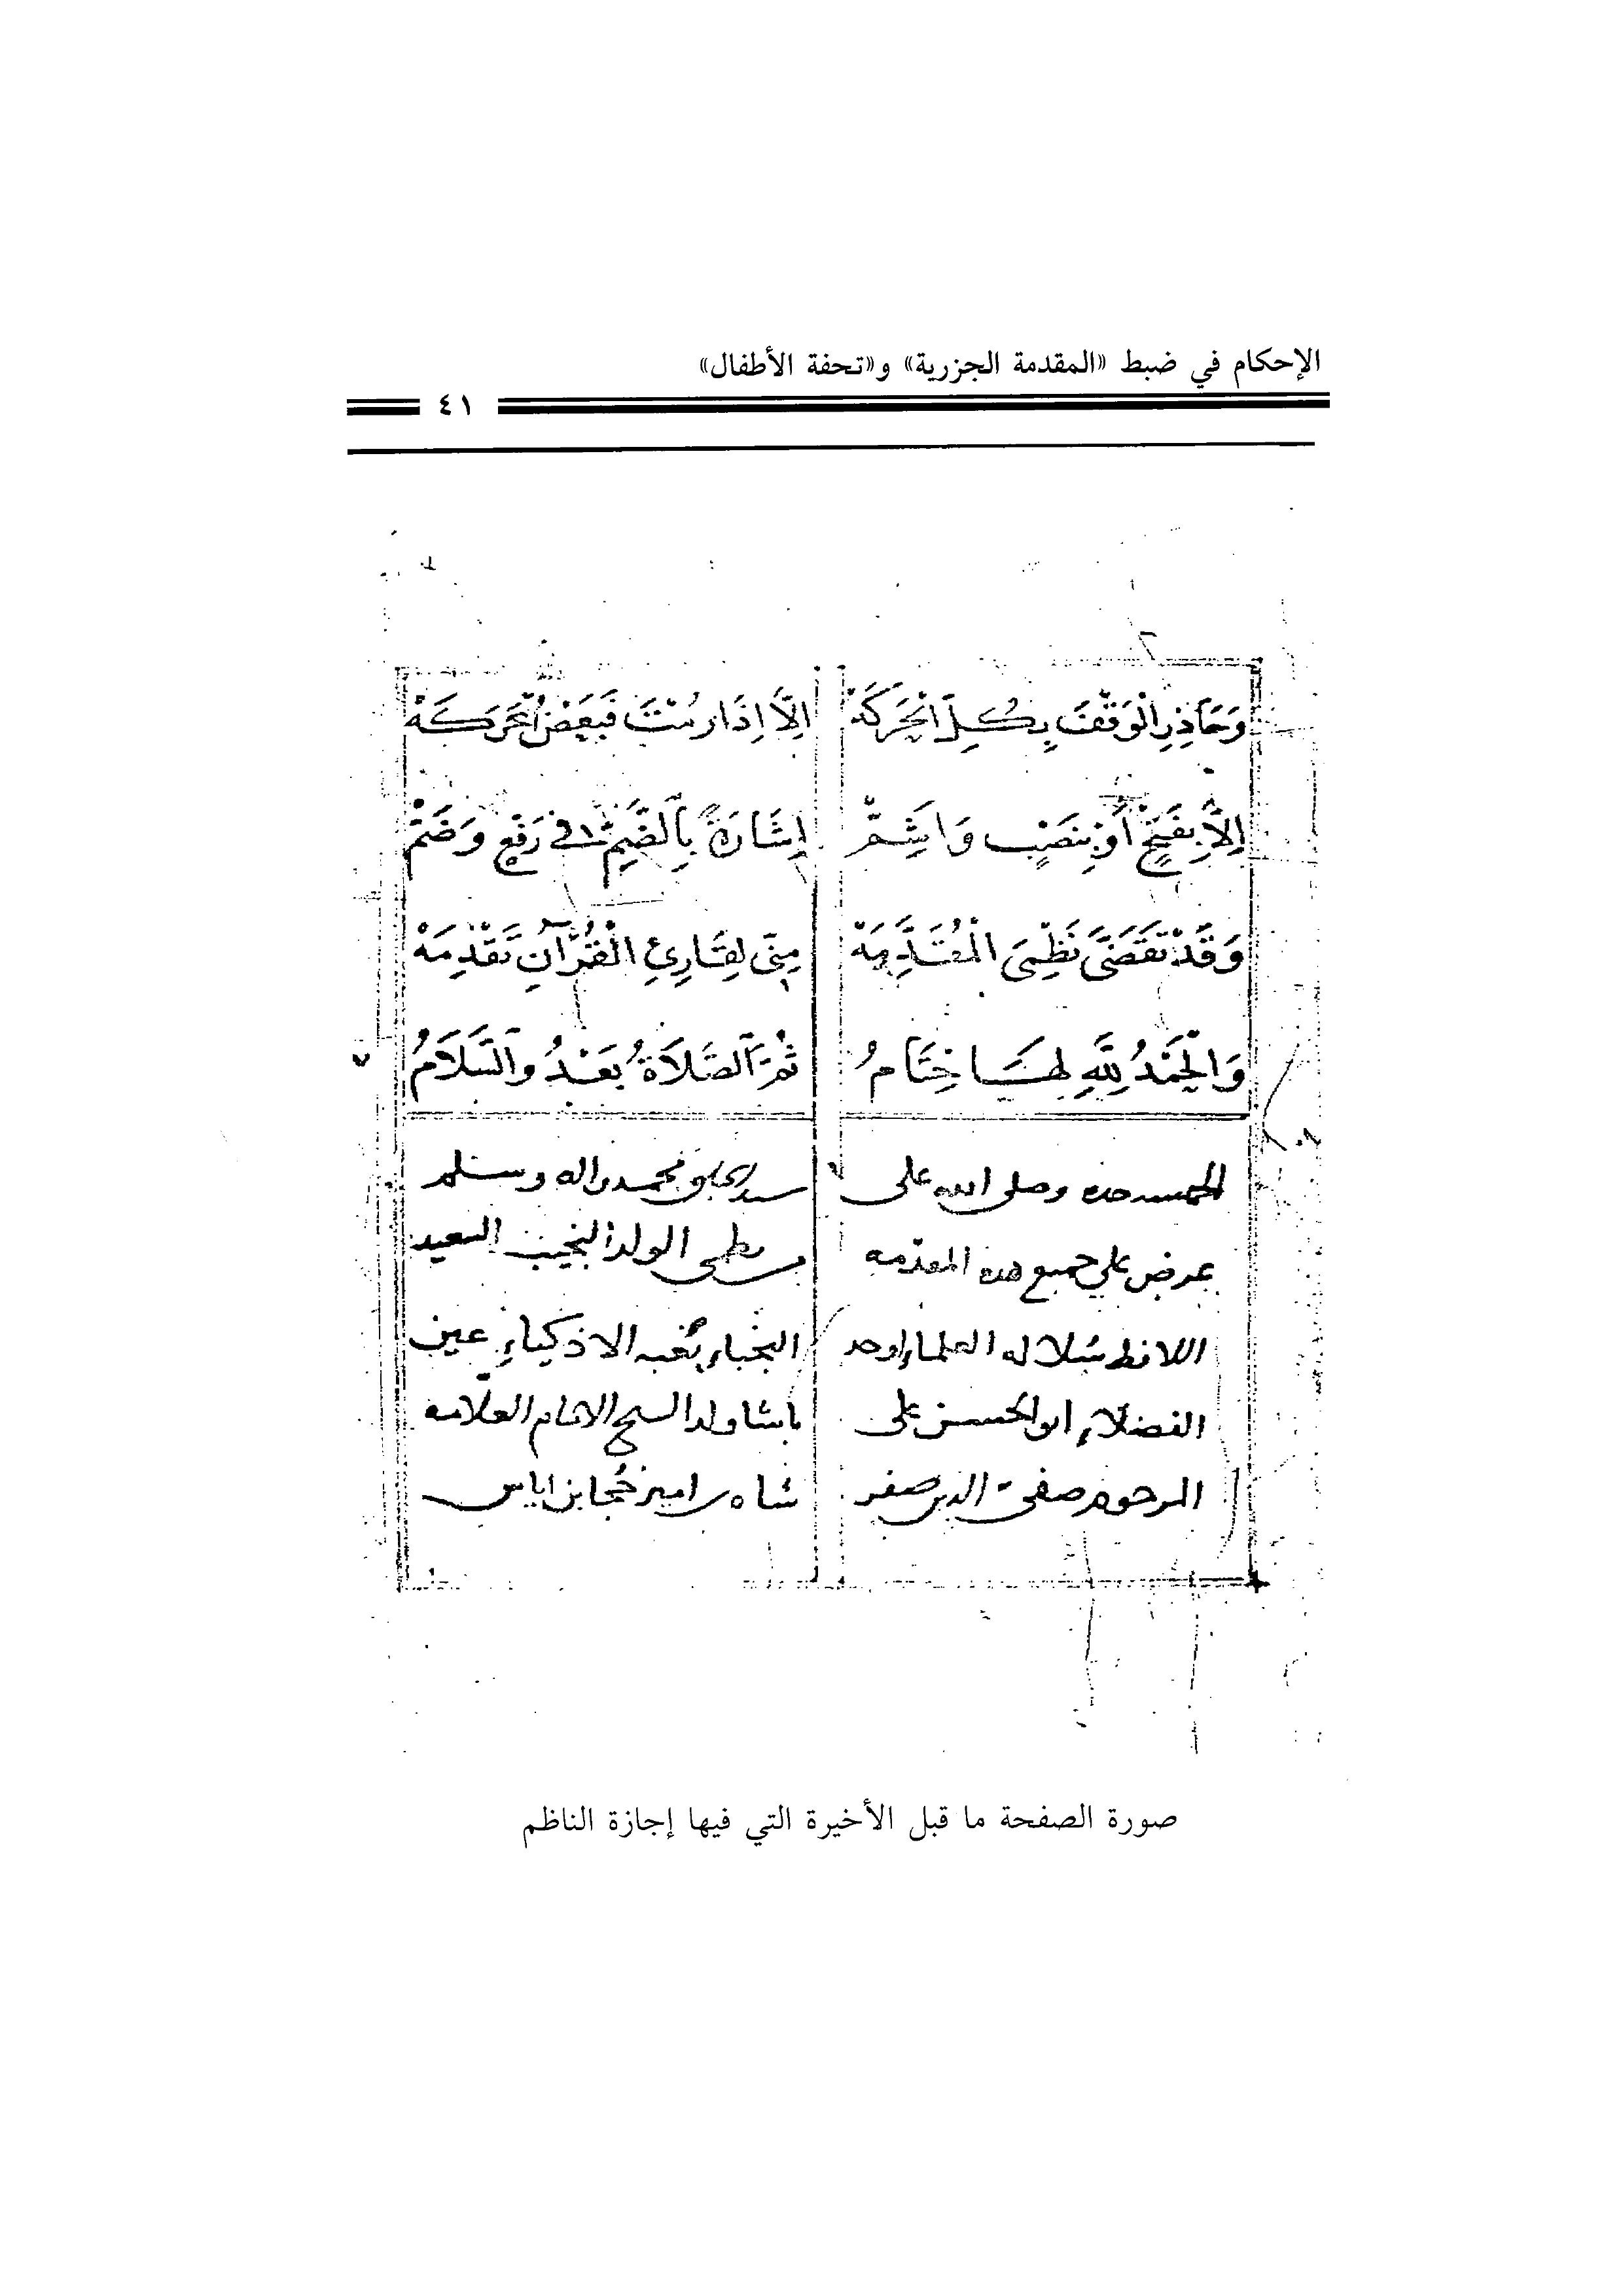 الإحكام في ضبط «المقدمة الجزرية» و«تحفة الأطفال»
٤١
وَحَاذِرِ الْوَقْفَ بِكُلِّ الْحَرَكَهْ إِلَّا إِذَا رُمْتَ فَبَعْضُ الْحَرَكَهْ
إِلَّا بِفَتْحٍ أَوْ بِنَصْبٍ وَاشِمّْ إِشَارَةً بِالضَّمِّ فِي رَفْعٍ وَضَمّْ
وَقَدْ تَقَضَّى نَظْمِيَ الْمُقَدِّمَهْ مِنِّي لِقَارِئِ الْقُرْآنِ تَقْدِمَهْ
وَالْحَمْدُ لِلَّهِ لَهَا خِتَامُ ثُمَّ الصَّلَاةُ بَعْدُ وَالسَّلَامُ
وصلى الله على محمد واله وسلم
عرض علي جميع هذه المقدمة من نظمي الولد النجيب السعيد
اللافظ سلالة العلماء اوحد النجباء نخبه الاذكياء عين
الفضلاء ابو الحسن على باشا ولد الشيخ الامام العلامه
المرحوم صفي الدين صفر شاه امير خجا بن اياس
صورة الصفحة ما قبل الأخيرة التي فيها إجازة الناظم